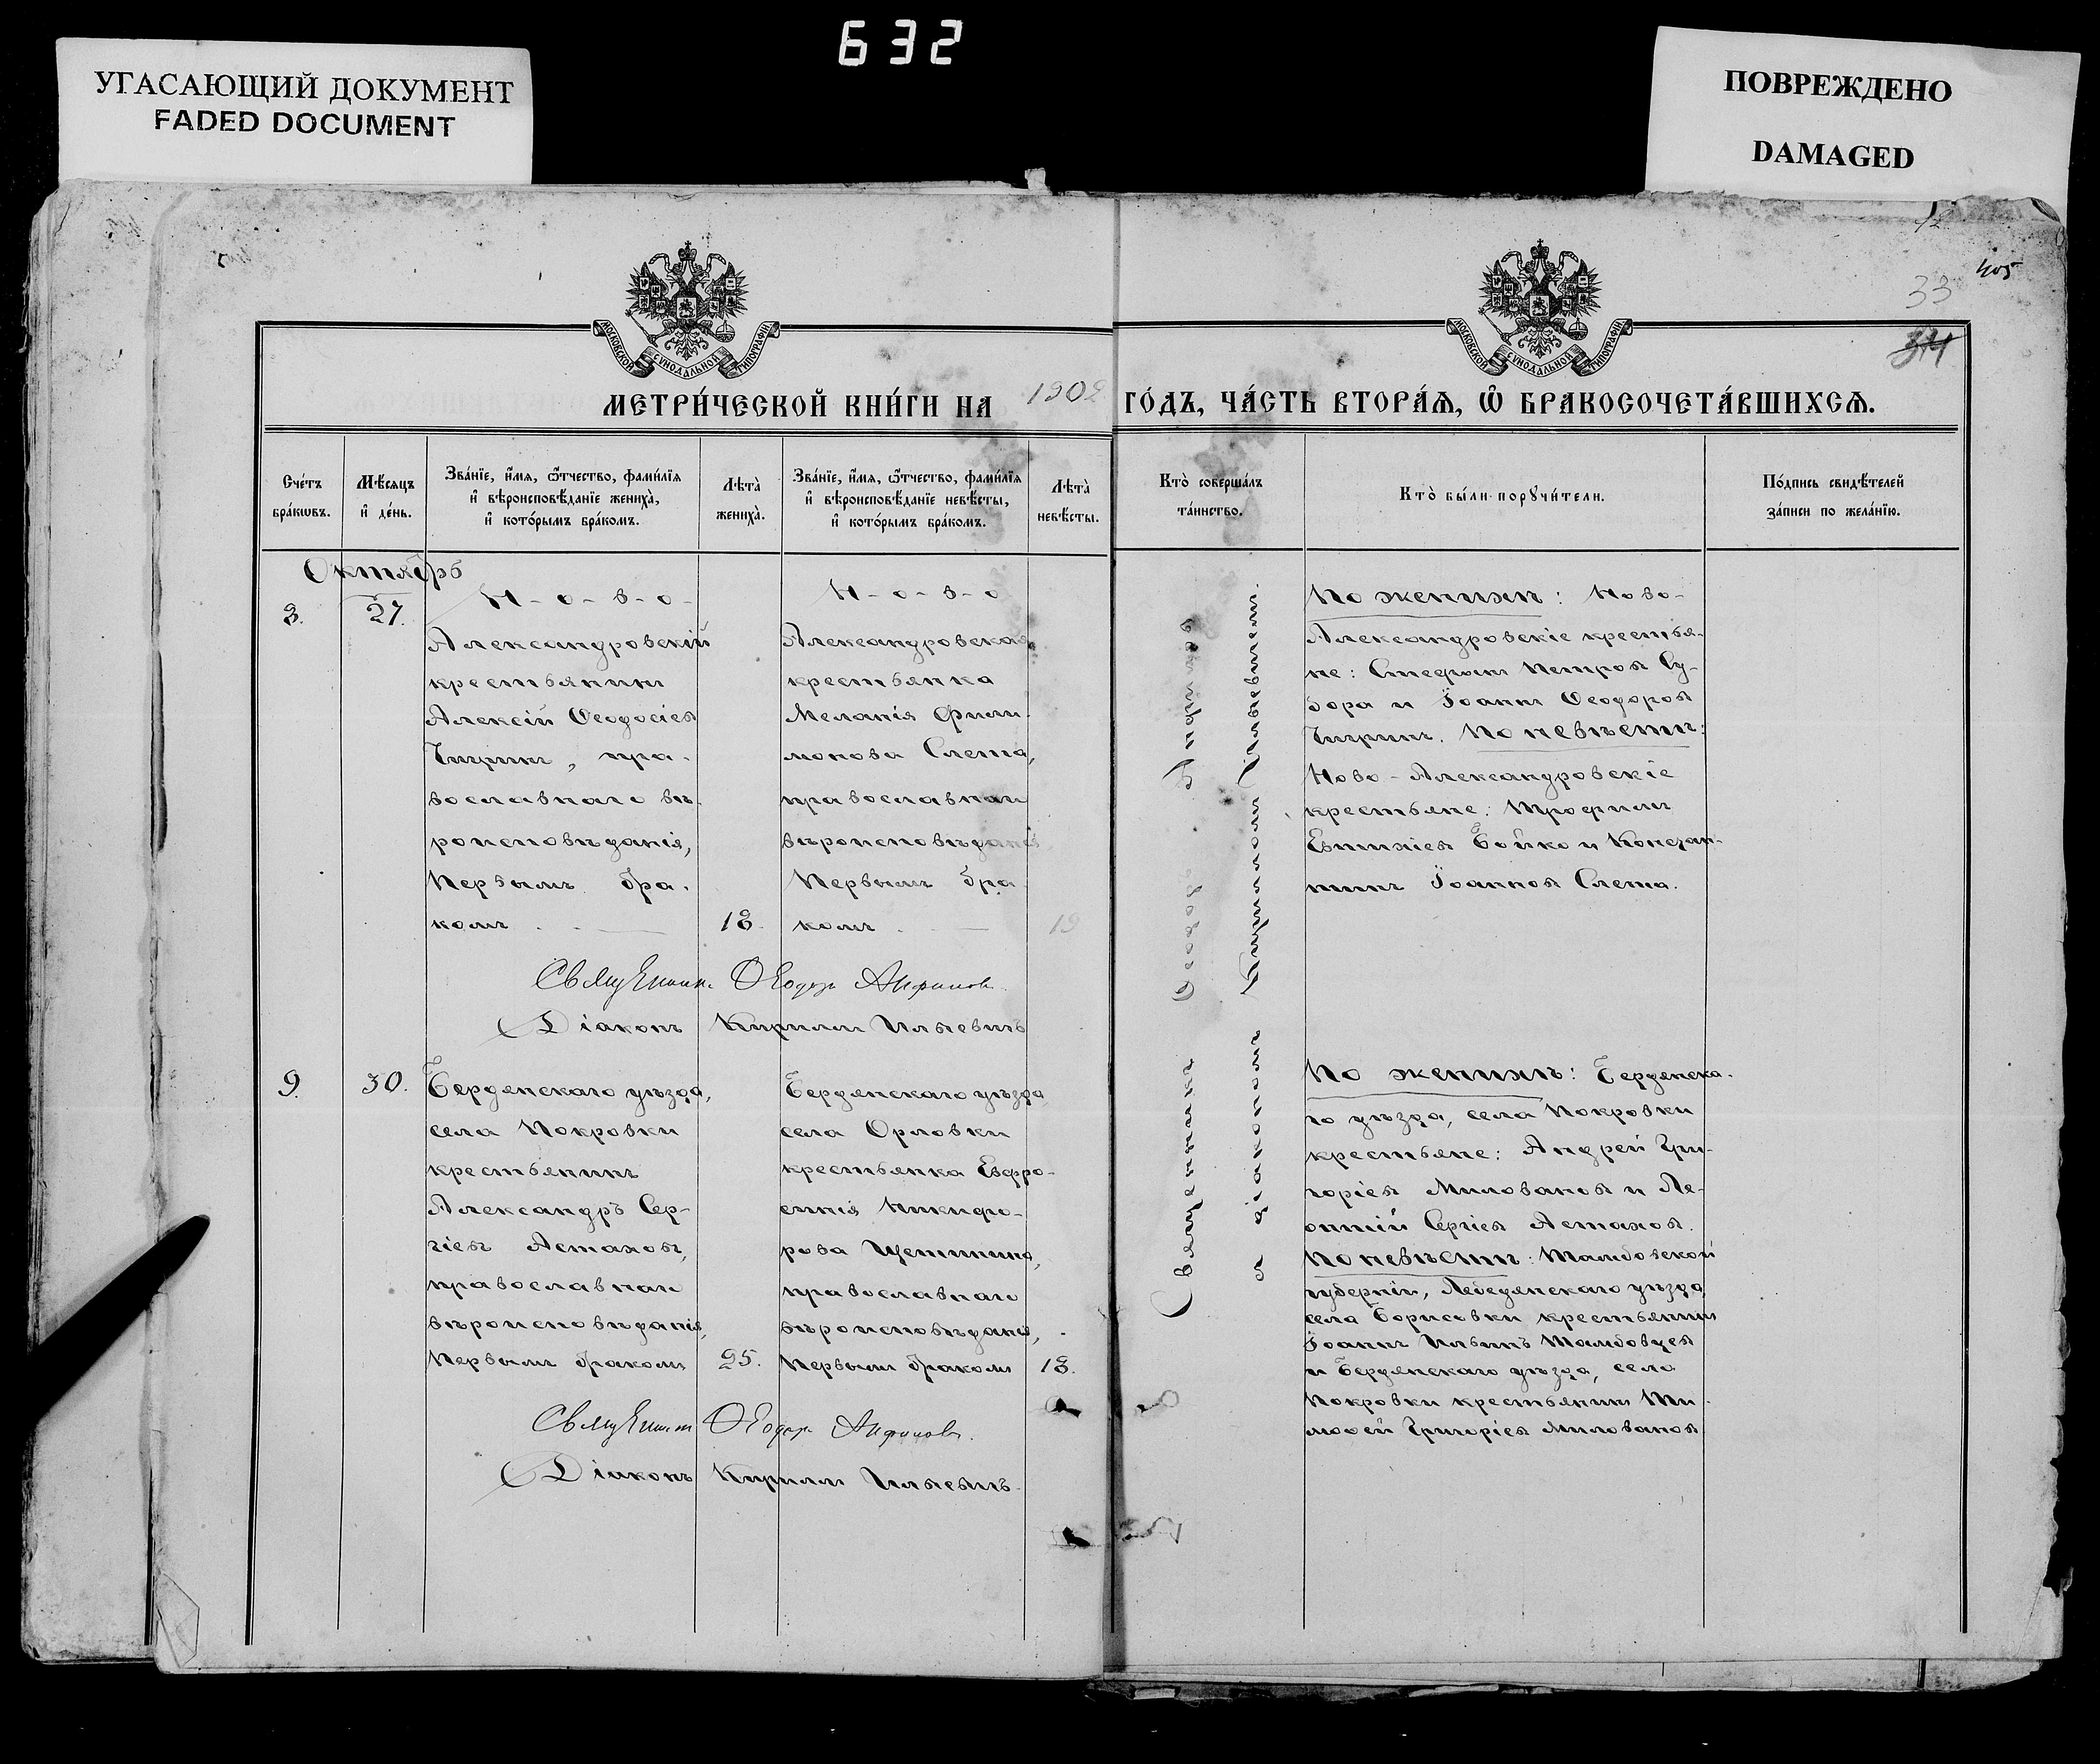 632
УГАСАЮЩИЙ ДОКУМЕНТ
FADED DOCUMENT
ПОВРЕЖДЕНО
DAMAGED
405
33
314
МОСКОВСКОЙ СѴНОДАЛЬНОЙ ТИПОГРАФІИ
МОСКОВСКОЙ СѴНОДАЛЬНОЙ ТИПОГРАФІИ
МЕТРИ́ЧЕСКОЙ КНИ́ГИ НА 1902 ГО́ДЪ, ЧА́СТЬ ВТОРА́Ѧ, Ѽ БРАКОСОЧЕТА́ВШИХСѦ.
Сче́тъ
бра́кѡвъ.
Мѣ́сяцъ
и҆ де́нь.
Зва́нїе, и҆́мя, ѻ҆́тчество, фами́лїя
и҆ вѣроисповѣ́данїе жениха̀,
и҆ кото́рымъ бра́комъ.
Лѣта̀
жениха̀.
Зва́нїе, и҆́мя, ѻ҆́тчество, фами́лїя
и҆ вѣроисповѣ́данїе невѣ́сты,
и҆ кото́рымъ бра́комъ.
Лѣта̀
невѣ́сты.
Кто̀ соверша́лъ
та́инство.
Кто̀ бы́ли порꙋчи́тели.
По́дпись свидѣ́телей
за́писи по жела́нїю.
Октябрь
8.
27.
Н-о-в-о-
Александровскій
крестьянинъ
Алексій Ѳеодосіевъ
Чигринъ, пра-
вославнаго вѣ-
роисповѣданія,
Первымъ бра-
комъ
18.
Н-о-в-о
Александровская
крестьянка
Меланія Фили-
монова Слета,
православнаго
вѣроисповѣданія
Первымъ бра
комъ
19
Священникъ Ѳеодоръ Анфимовъ
Діаконъ Кириллъ Ильевичъ
Священникъ Ѳеодоръ Анфимовъ
съ діакономъ Кирилломъ Ильевичемъ.
По женихѣ: Ново-
Александровскіе крестья-
не: Стефанъ Петровъ Су-
бора и Іоаннъ Ѳеодоровъ
Чигринъ. По невѣстѣ:
Ново-Александровскіе
крестьяне: Трофимъ
Евтихіевъ Бойко и Констан-
тинъ Іоанновъ Слета.
9.
30.
Бердянскаго уѣзда,
села Покровки
крестьянинъ
Александръ Сер-
гіевъ Астаховъ,
православнаго
вѣроисповѣданія,
Первымъ бракомъ
25.
Бердянскаго уѣзда
села Орловки
крестьянка Евфро-
синія Никифо-
рова Щетинина,
православнаго
вѣроисповѣданія,
Первымъ бракомъ
18.
Священникъ Ѳеодоръ Анфимовъ.
Діаконъ Кириллъ Ильевичъ.
По женихѣ: Бердянска-
го уѣзда, села Покровки
крестьяне: Андрей Гри-
горіевъ Миловановъ и Ле-
онтій Сергіевъ Астаховъ.
По невѣстѣ: Тамбовской
губерніи, Лебедянскаго уѣзда,
села Борисовки крестьянинъ
Іоаннъ Ильинъ Тамбовцевъ
и Бердянскаго уѣзда, села
Покровки крестьянинъ Ти-
моѳей Григоріевъ Миловановъ